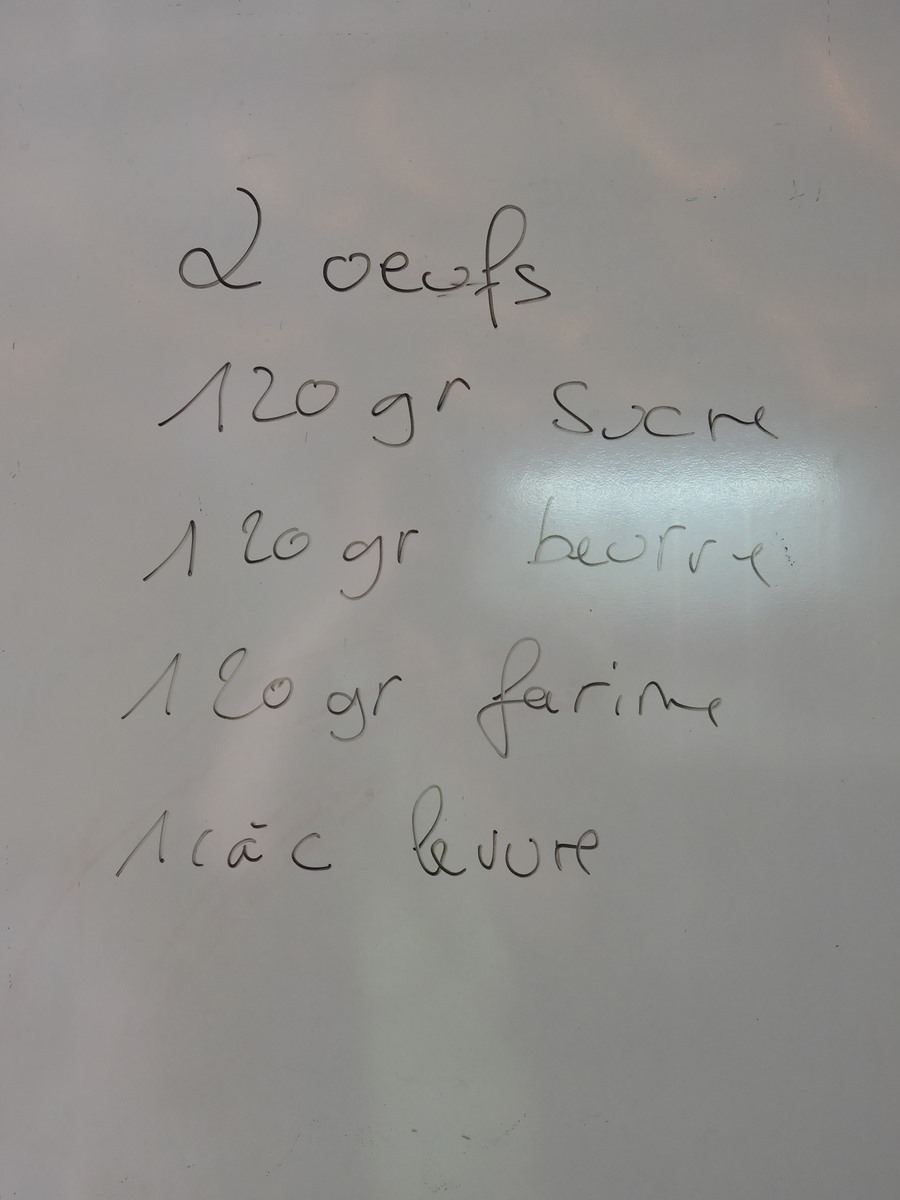 2 oeufs
120 gr sucre
120 gr beurre
120 gr farine
1 c à c levure